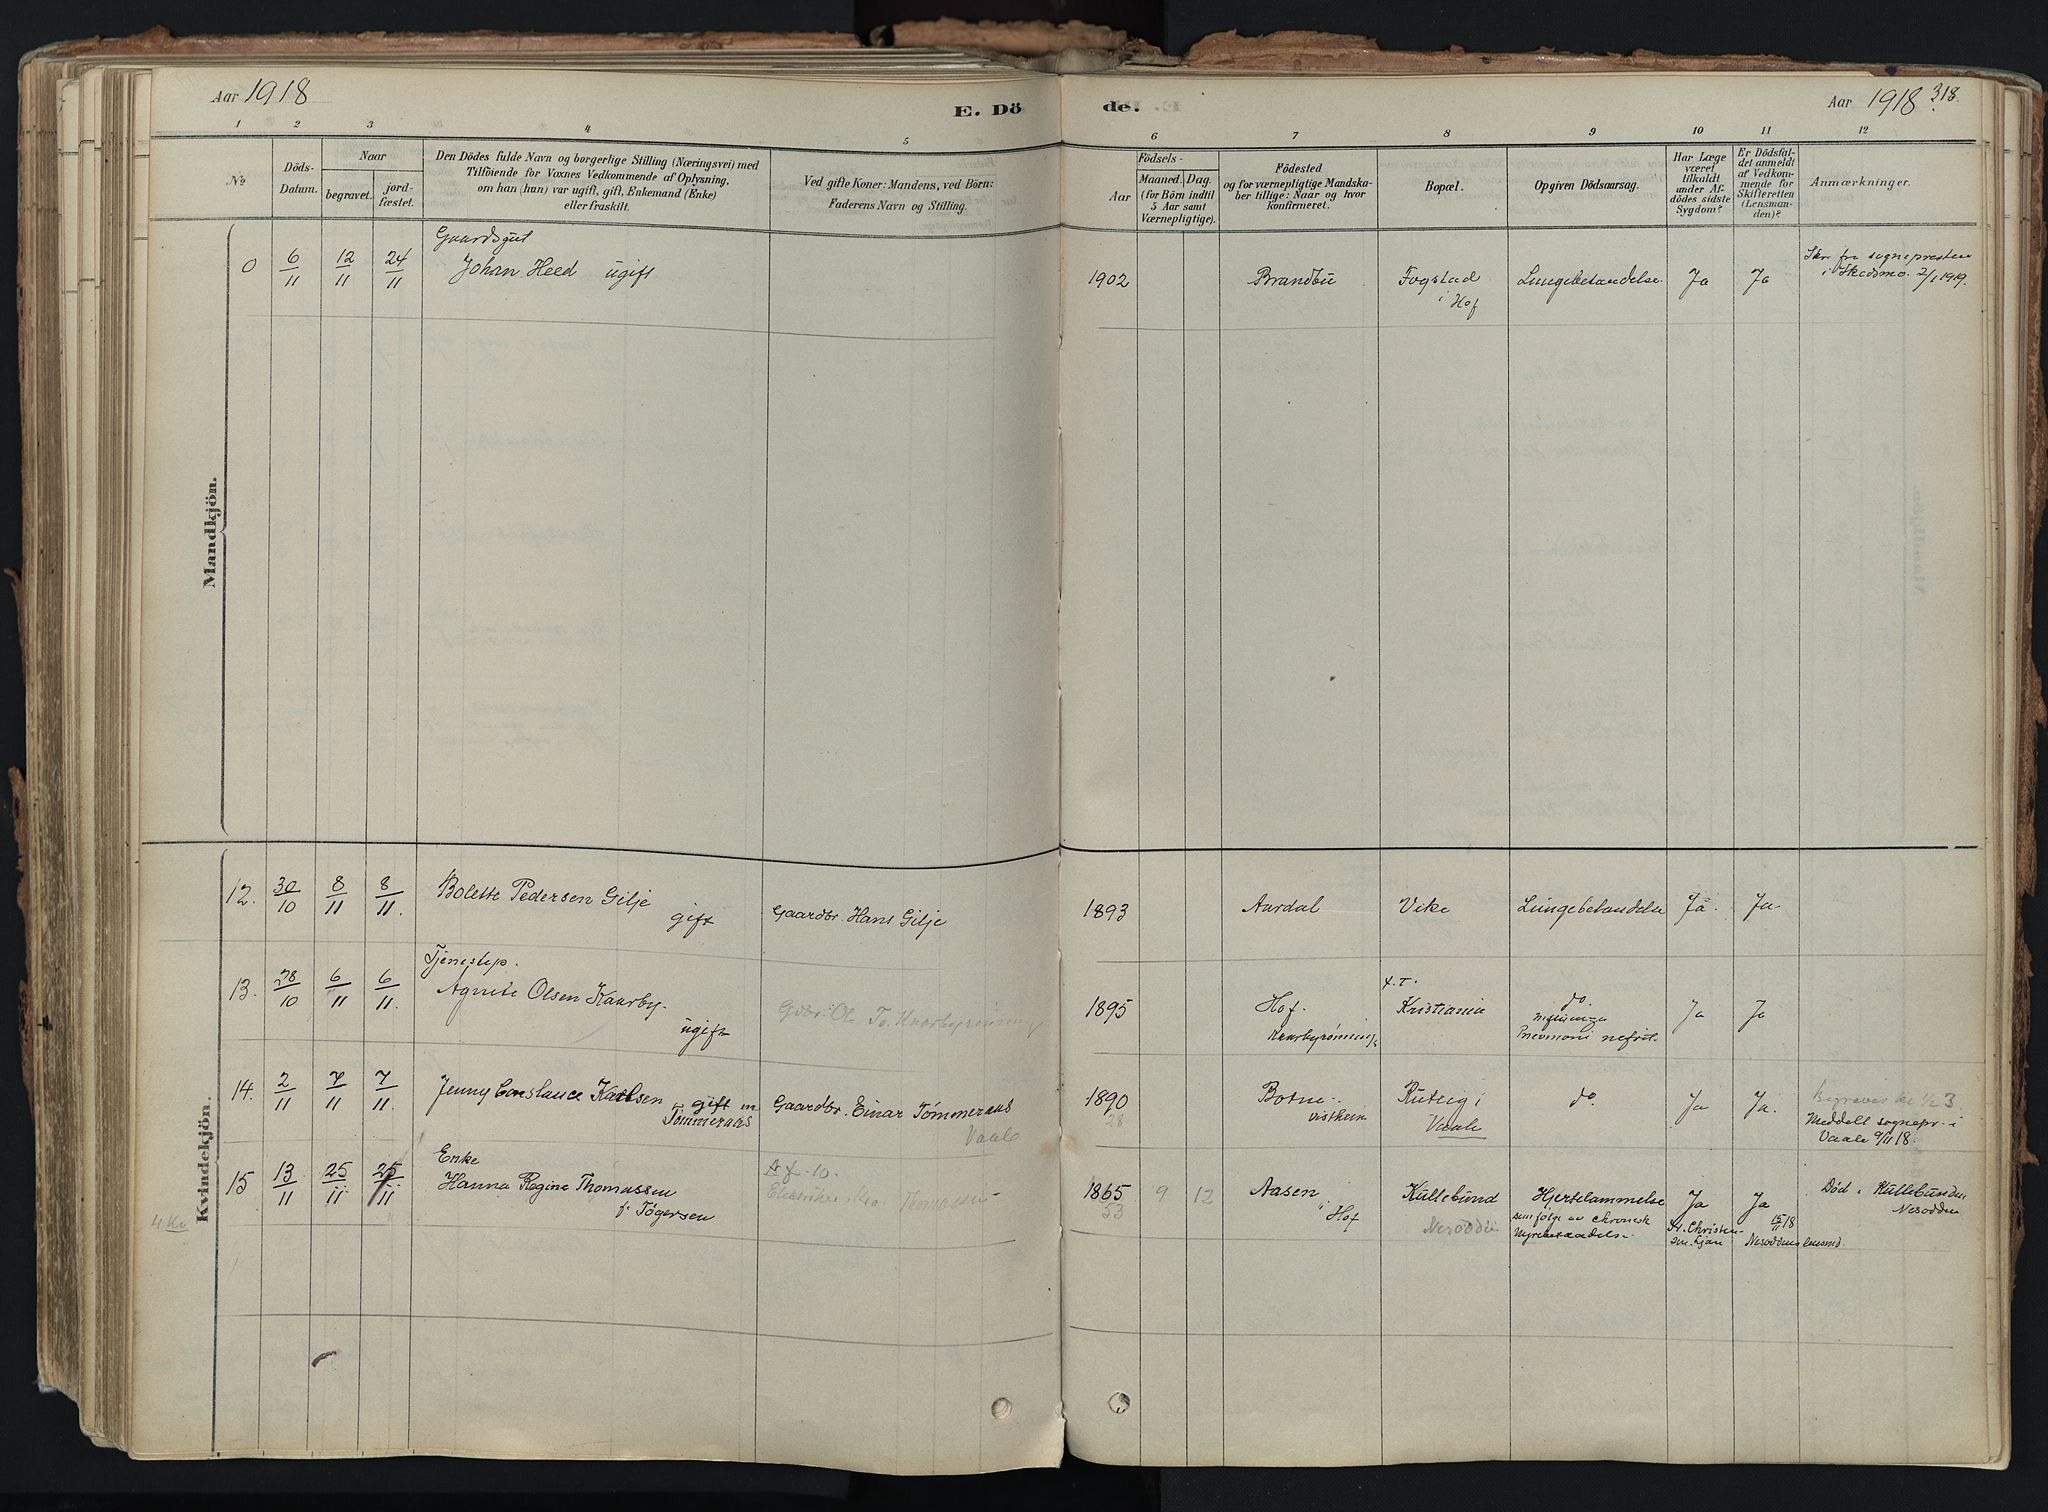 Aar 1918
E. Dö
de.
Aar 1918
318.
1 2 3 4 5 6 7 8 9 10 11 12
No
Döds-
Datum.
Naar
begravet.
jord-
fæstet.
Den Dödes fulde Navn og borgerlige Stilling (Næringsvei) med
Tilföiende for Voxnes Vedkommende af Oplysning,
om han (hun) var ugift, gift, Enkemand (Enke)
eller fraskilt.
Ved gifte Koner: Mandens, ved Börn:
Faderens Navn og Stilling.
Födsels-
Aar
Maaned. Dag.
(for Börn indtil
5 Aar samt
Værnepligtige).
Födested
og for værnepligtige Mandska-
ber tillige: Naar og hvor
konfirmeret.
Bopæl.
Opgiven Dödsaarsag.
Har Læge
været
tilkaldt
under Af-
dödes sidste
Sygdom?
Er Dödsfal-
det anmeldt
af Vedkom-
mende for
Skifteretten
(Lensman-
den)?
Anmærkninger.
Mandkjön.
0 6/11 12/11 24/11 Gaardsgut
Johan Heed ugift
1902 Brandbu Fogstad
i Hof
Lungebetændelse. Ja Ja
Skr. fra sognepresten
i Skedsmo 2/1 1919.
Kvindekjön.
12. 30/10 8/11 8/11. Bolette Pedersen Gilje
gift
Gaardbr. Hans Gilje
1893 Aardal Vike Lungebetændelse Ja. Ja
13. 28/10 6/11 6/11. Tjenestep.
Agnete Olsen Kaarby.
ugift
1895 Hof.
f.T.
Kristiania
do
Ja Ja
14. 2/11 7/11 7/11. Jenny Constance Karlsen
gift m
Tømmeraas
Gaardbr. Einar Tømmeraas
Vaale
1890
28
Botne
Vaale
do Ja Ja.
Meddelt sognepr. i
Vaale 9/11 18.
15 13/11 25/11 25/11 Enke
Hanna Regine Thomassen
f. Tøgersen
1865 9 12
53
Aasen
i Hof
Kullebund
Nesodden
Hjertelammelse
som følge av chronisk
nyrebetændelse.
Ja
Dr. Christen-
sen. Ljan
Ja
15/11 18
Nesoddens lensmd.
Død i Kullebunden
Nesodden
4 Kv